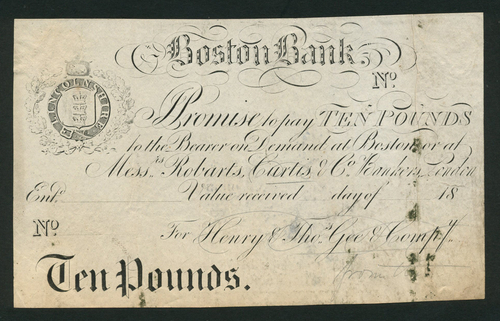 Boston Bank
No.
LINCOLNSHIRE
I Promise to pay TEN POUNDS
to the Bearer on Demand, at Boston or at
Mess.rs Roberts, Curtis & Co. Bankers, London
Value received day of 18
Ent.
No.
For Henry & Thos. Gee & Comp.y
from
Ten Pounds.